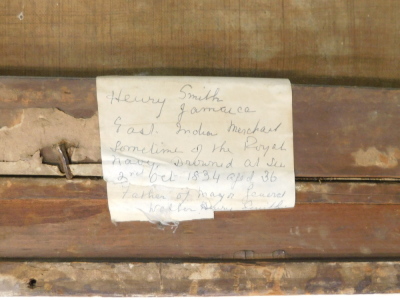 Henry Smith
Jamaica
East India Merchant
sometime of the Royal
Navy, at Sea
2nd Oct 1834 aged 36
Father of Major General